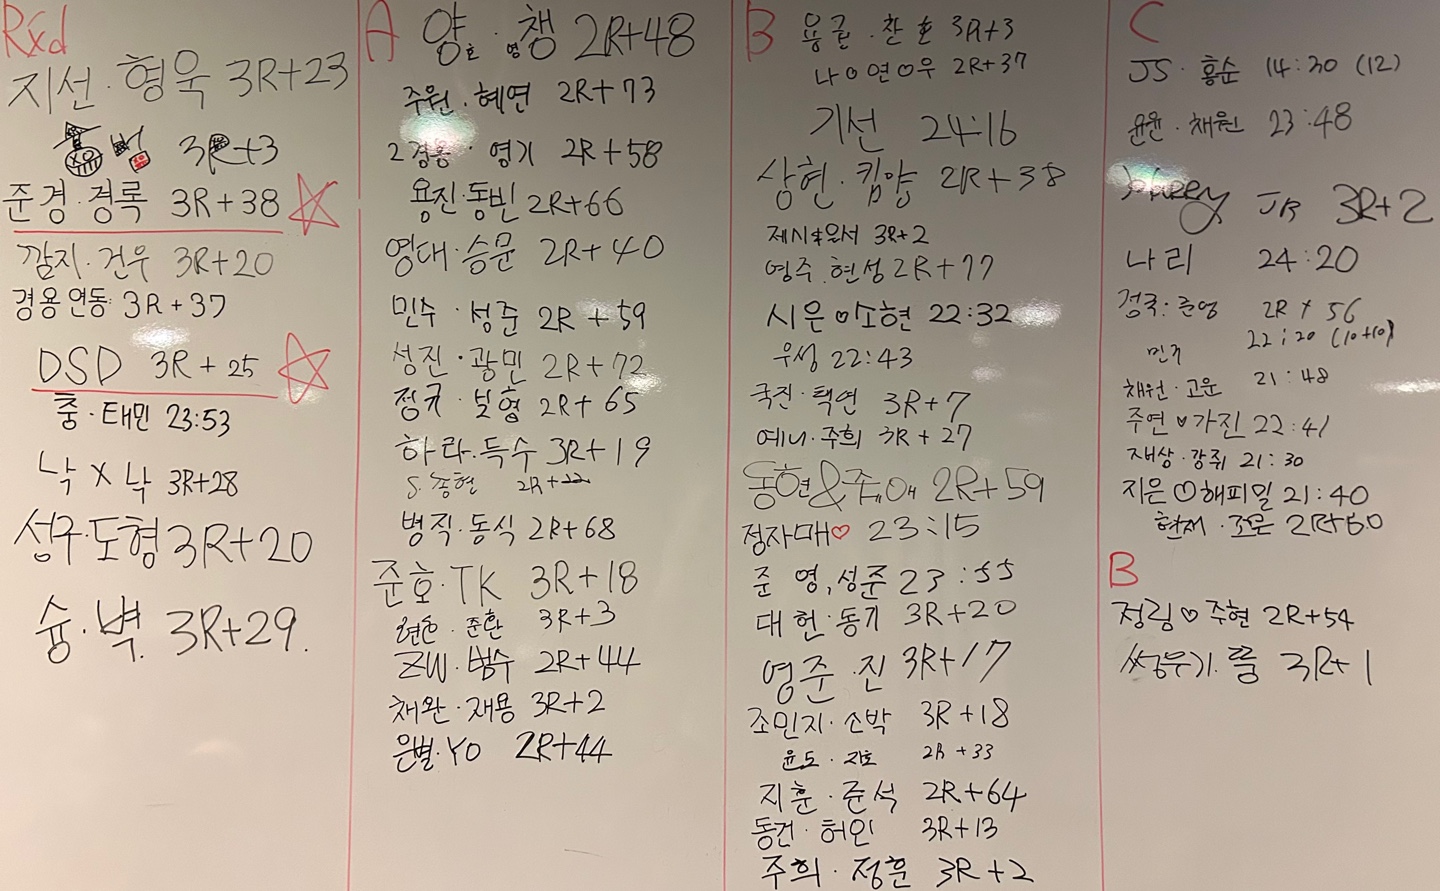 Rxd
지선·형욱 3R+23
3R+3
준경·경록 3R+38
깔지·건우 3R+20
경용연동 3R+37
DSD 3R+25
충·태민 23:53
낙×낙 3R+28
성우·도형 3R+20
슝·벽 3R+29.
A
양호·영챙 2R+48
주원·혜연 2R+73
2경용·영기 2R+58
용진·동빈 2R+66
영대·승문 2R+40
민수·성준 2R+59
성진·광민 2R+72
정규·보형 2R+65
하라·득수 3R+19
S.종현 2R+22
병직·동식 2R+68
준호·TK 3R+18
준환 3R+3
ZW·범수 2R+44
채완·재용 3R+2
은별·YO 2R+44
B
용근·찬호 3R+3
나♡연♡우 2R+37
기선 24:16
상현·킴양 2R+38
제시&은서 3R+2
영주 현성 2R+77
시은♡소현 22:32
우성 22:43
국진·택연 3R+7
예니·주희 3R+27
동현& 2R+59
정자매♡ 23:15
준영,성준 23:55
대헌·동기 3R+20
영준·진 3R+17
조민지·소박 3R+18
윤도·지호 2R+33
지훈·준석 2R+64
동건·허인 3R+13
주희·정훈 3R+2
C
JS·홍순 14:30 (12)
윤윤·채원 23:48
JR 3R+2
나리 24:20
정국·준영 2R+56
민기 22:20 (10+10)
채원·고운 21:48
주연♡가진 22:41
재상·강쥐 21:30
지은♡해피밀 21:40
현재·조은 2R+60
B
정림♡주현 2R+54
쌍우기·쭘 3R+1